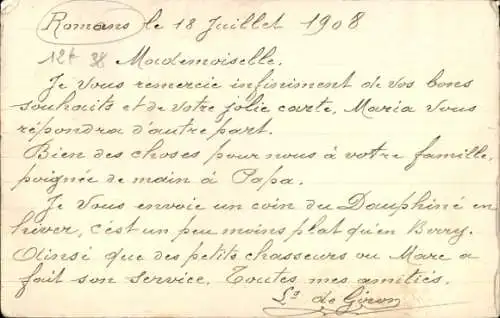 Romans le 18 Juillet 1908
Mademoiselle.
Je vous remercie infiniment de vos bons
souhaits et de votre jolie carte, Maria vous
répondra d'autre part.
Bien des choses pour nous à votre famille,
poignée de main à Papa.
Je vous envoie un coin du Dauphiné en
hiver, c'est un peu moins plat qu'en Berry.
Ainsi que des petits chasseurs ou Marc a
fait son service. Toutes mes amitiés.
de Giron